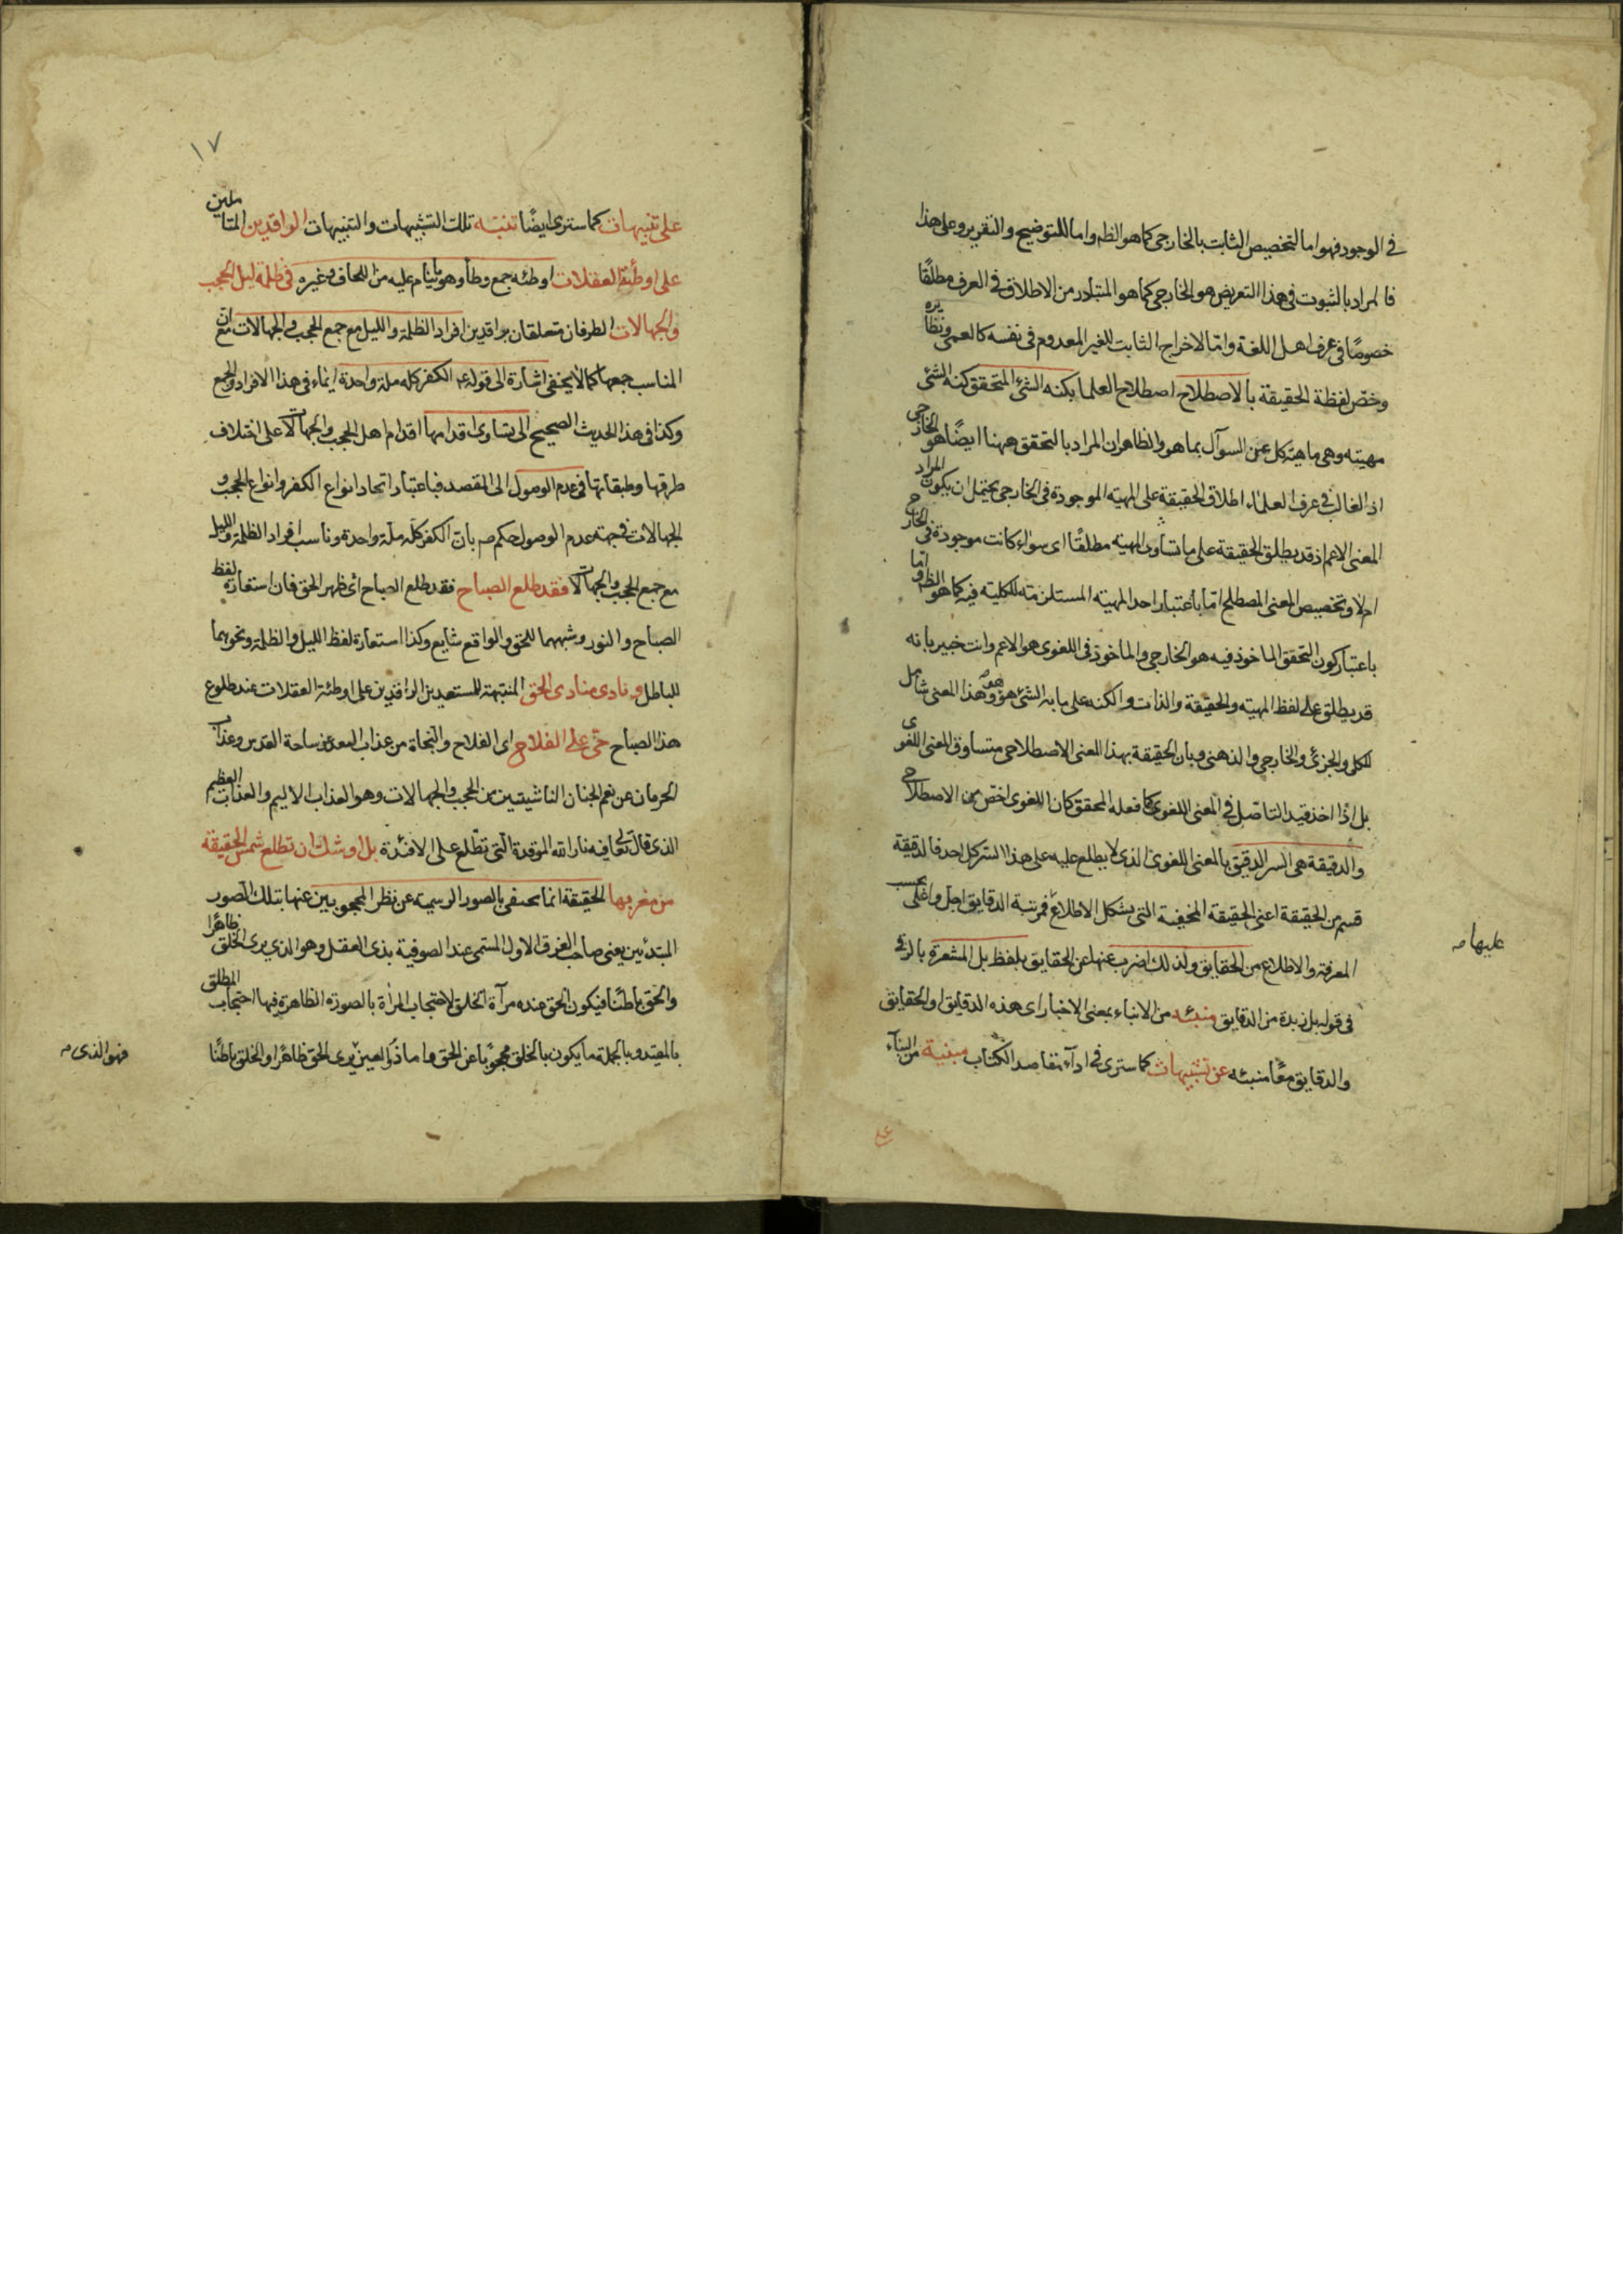 في الوجود فهو اما لتخصيص الثابت بالخارجي كما هو الظ واما للتوضيح والتقرير وعلى هذا
فالمراد بالثبوت في هذا التعريض هو الخارجي كما هو المتبادر من الاطلاق في العرف مطلقًا
خصوصًا في عرف اهل اللغة واما لاخراج الثابت للغير المعدوم في نفسه كالعمى ونظايره
وخصّ لفظة الحقيقة بالاصطلاح اصطلاح العلما بكنه الشئ المتحقق كنه الشئ
مهيته وهى ماهيته كل عن السوآل بما هو والظاهر ان المراد بالتحقق ههنا ايضًا هو الخارجى
اذ الغالب في عرف العلماء اطلاق الحقيقة على المهيته الموجودة في الخارجى يحتمل ان يكون المراد
المعنى الاعم اذ قد يطلق الحقيقة على ما يساوى المهيته مطلقًا اى سواء كانت موجودة في الخارج
ام لا وتخصيص المعنى المصطلح امّا باعتبار احد المهيته المستلزمته للكليته فيه كما هو الظ و امّا
باعتبار كون التحقق الماخوذ فيه هو الخارجى والماخوذ في اللغوى هو الاعم وانت خبير بانه
قد يطلق على لفظ المهيته والحقيقة والذات والكنه على ما به الشئ هو هو وهذا المعنى شامل
للكلى والجزئى والخارجى والذهنى وبان الحقيقة بهذا المعنى الاصطلاحى متساوق المعنى اللغوى
بل اذا اخذ قيد التاصّل في المعنى اللغوى كما فعله المحقق كان اللغوى اخصّ من الاصطلاحى
والدقيقة هى السر الدقيق بالمعنى اللغوى الذى لا يطلع عليه على هذا السّر كل احد فالدقيقة
قسم من الحقيقة اعنى الحقيقة المخفية التى يشكل الاطلاع فمرتبة الدقايق اجل واعلى بحسب
عليها صه
المعرفة والاطلاع من الحقايق ولذلك اضرب عنها عن الحقايق بلفظ بل المشعرة بالترقى
في قوله بل زبدة من الدقايق منبئه من الانباء بمعنى الاخبار اى هذه الدقايق او الحقايق
والدقايق معًا منبئه عن تشبيهات كما سترى في ادآء مقاصد الكتاب مبنية من البنآء
١٧
على تنبيهات كما سترى ايضًا تنبّه تلك التشبيهات والتنبيهات الواقدين المتاملين
على اوطئة الغفلات اوطئه جمع وطأ وهو ما ينام عليه من اللحاف وغيره في ظلمة ليل الحجب
والجهالات الطرفان متعلقان براقدين افراد الظلمة والليل مع جمع الحجب و الجهالات مع ان
المناسب جمعها كما لا يخفى اشارة الى قوله عم الكفر كله ملة واحدة ايماء في هذا الافراد والجمع
وكذا في هذ الحديث الصحيح الى تساوى اقدامها اقدام اهل الحجب والجهالات على اختلاف
طرقها وطبقاتها في عدم الوصول الى المقصد فباعتبار اتحاد انواع الكفر وانواع الحجب و
الجهالات في جهته عدم الوصول حكم صم بان الكفر كله ملة واحدة وناسب افراد الظلمة والليل
مع جمع الحجب والجهالات فقد طلع الصباح فقد طلع الصباح اى ظهر الحق فان استعارة لفظ
الصباح والنور وشبههما للحق والواقع شايع وكذا استعارة لفظ الليل والظلمة ونحوهما
للباطل و نادى منادى الحق المنبّهة للمستعدين الراقدين على اوطئة الغفلات عند طلوع
هذا الصباح حىّ على الفلاح اى الفلاح والنجاة من عذاب البعد عن ساحة القدس وعذاب
الحرمان عن نعم الجنان الناشيتين من الحجب والجهالات وهو العذاب الاليم والعذاب العظيم
الذى قال تعالى فيه نار الله الموقدة التى تطّلع على الافئدة بل اوشك ان تطلع شمس الحقيقة
من مغربها الحقيقة انما تختفى بالصور الرسمية عن نظر المحجوبين عنها بتلك الصور
المبتدئين يعنى صاحب الفرق الاول المسمى عند الصوفية بذى العقل وهو الذى يرى الخلق ظاهرًا
والحق باطنًا فيكون الحق عنده مرآة الخلق لاحتجاب المرآة بالصورة الظاهرة فيها احتجاب المطلق
بالمقيد وبالجملة ما يكون بالخلق محجوبًا عن الحق واما ذو العين يرى الحق ظاهرًا والخلق باطنًا
فهو الذى صه